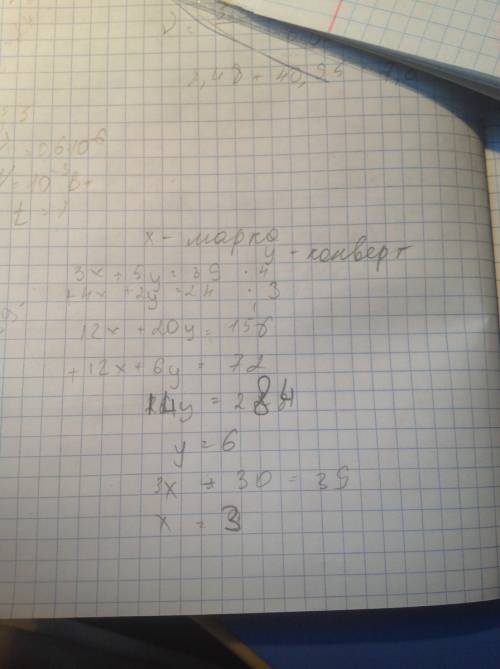 1,48 + 40,95
x - марка
y - конверт
3x + 5y = 39 · 4
+4x + 2y = 24 · 3
12x + 20y = 156
+ 12x + 6y = 72
14y = 284
y = 6
3x + 30 = 39
x = 3